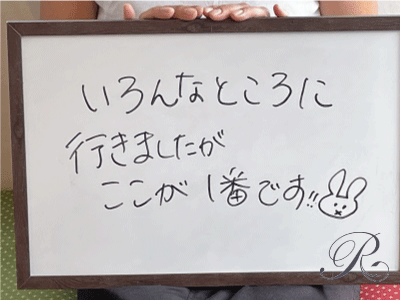 いろんなところに
行きましたが
ここが1番です!!
R